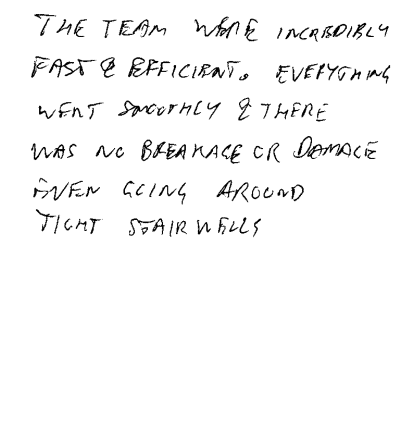 THE TEAM WERE INCREDIBLY
FAST & EFFICIENT. EVERYTHING
WENT SMOOTHLY & THERE
WAS NO BREAKAGE OR DAMAGE
EVEN GOING AROUND
TIGHT STAIRWELLS